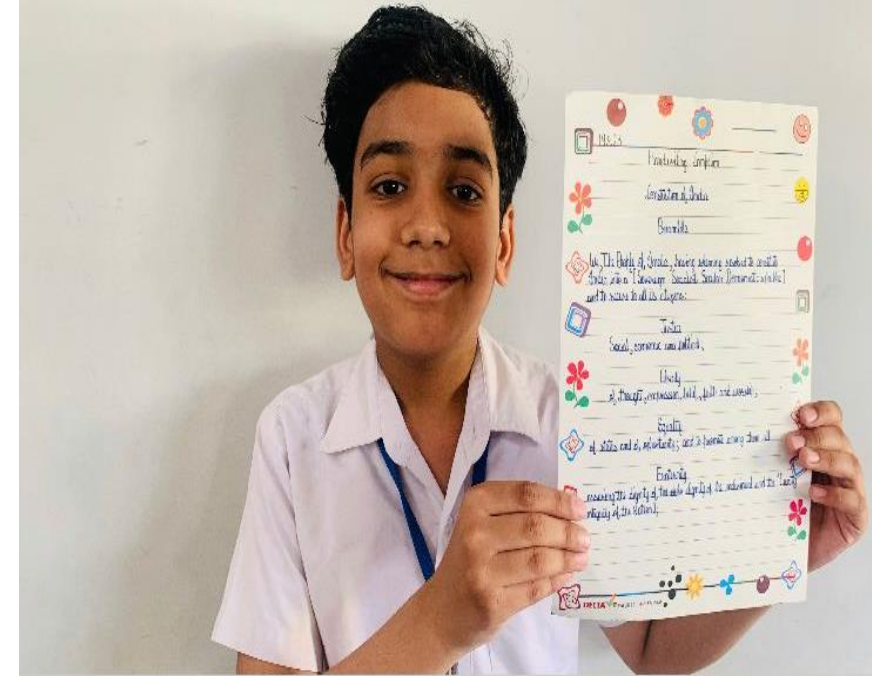 Handwriting Competition
Constitution of India
Preamble
We, The People of India, having solemnly resolved to constitute
India into a [Sovereign Socialist Secular Democratic republic]
and to secure to all its citizens:
Justice
Social, economic and political;
Liberty
of thought, expression, belief, faith and worship;
Equality
of status and of opportunity; and to promote among them all
Fraternity
assuring the dignity of the dignity of the individual and the "[unity
integrity of the Nation];
DELTA